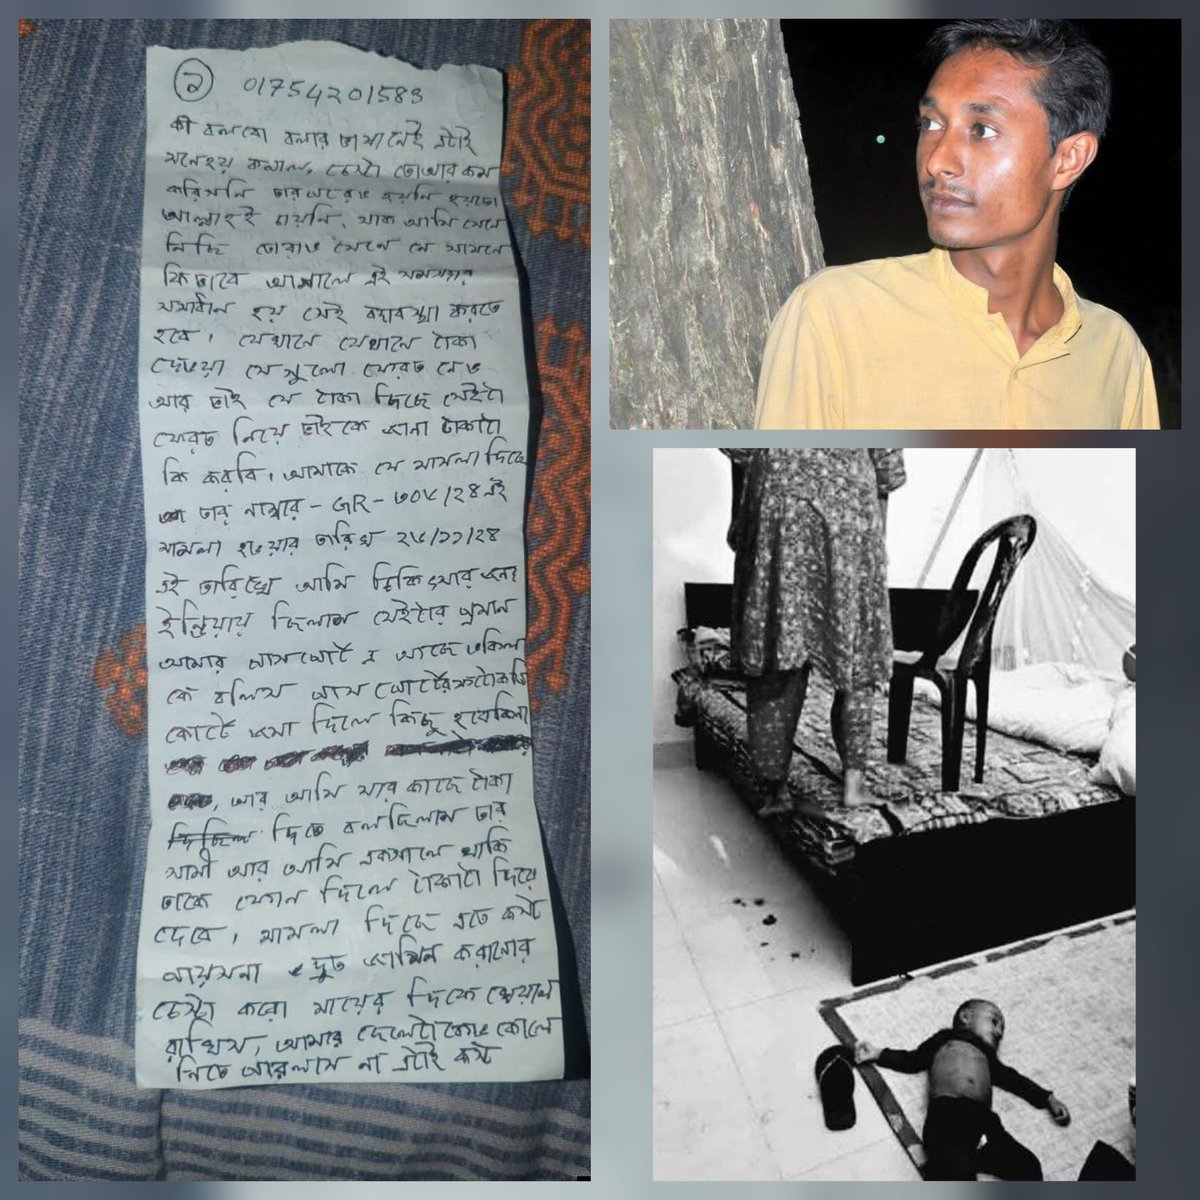 ২ 01754201583
কী বলবো বলার ভাষা নেই এটাই
মনেহয় কপাল, চেষ্টা তো আর কম
করিসনি তার পরেও হয়নি হয়তো
আল্লাহই চায়নি, যাক আমি মেনে
নিছি তোরাও মেনে নে সামনে
কিভাবে আগালে এই সমস্যার
সমাধান হয় সেই ব্যবস্থা করতে
হবে, যেখানে যেখানে টাকা
দেওয়া সেগুলো ফেরত নেও
আর ভাই যে টাকা দিছে সেইটা
ফেরত নিয়ে ভাইকে জানা টাকাটা
কি করবি, আমাকে যে মামলা দিছে
তার নাম্বার - GR - ৩০৮/২৪ এই
মামলা হওয়ার তারিখ ২৮/১১/২৪
এই তারিখে আমি চিকিৎসার জন্য
ইন্ডিয়ায় ছিলাম সেইটার প্রমান
আমার পাসপোর্ট এ আছে উকিল
কে বলিস পাসপোর্টের ফটোকপি
কোর্টে জমা দিলে কিছু হবে কিনা
, আর আমি যার কাছে টাকা
দিতে বলছিলাম তার
স্বামী আর আমি একসাথে থাকি
তাকে ফোন দিলে টাকাটা দিয়ে
দেবে, মামলা দিছে এতে কষ্ট
পায়সনা দ্রুত জামিন করানোর
চেষ্টা করো মায়ের দিকে খেয়াল
রাখিস, আমার ছেলেটাকেও কোলে
নিতে পারলাম না এটাই কষ্ট